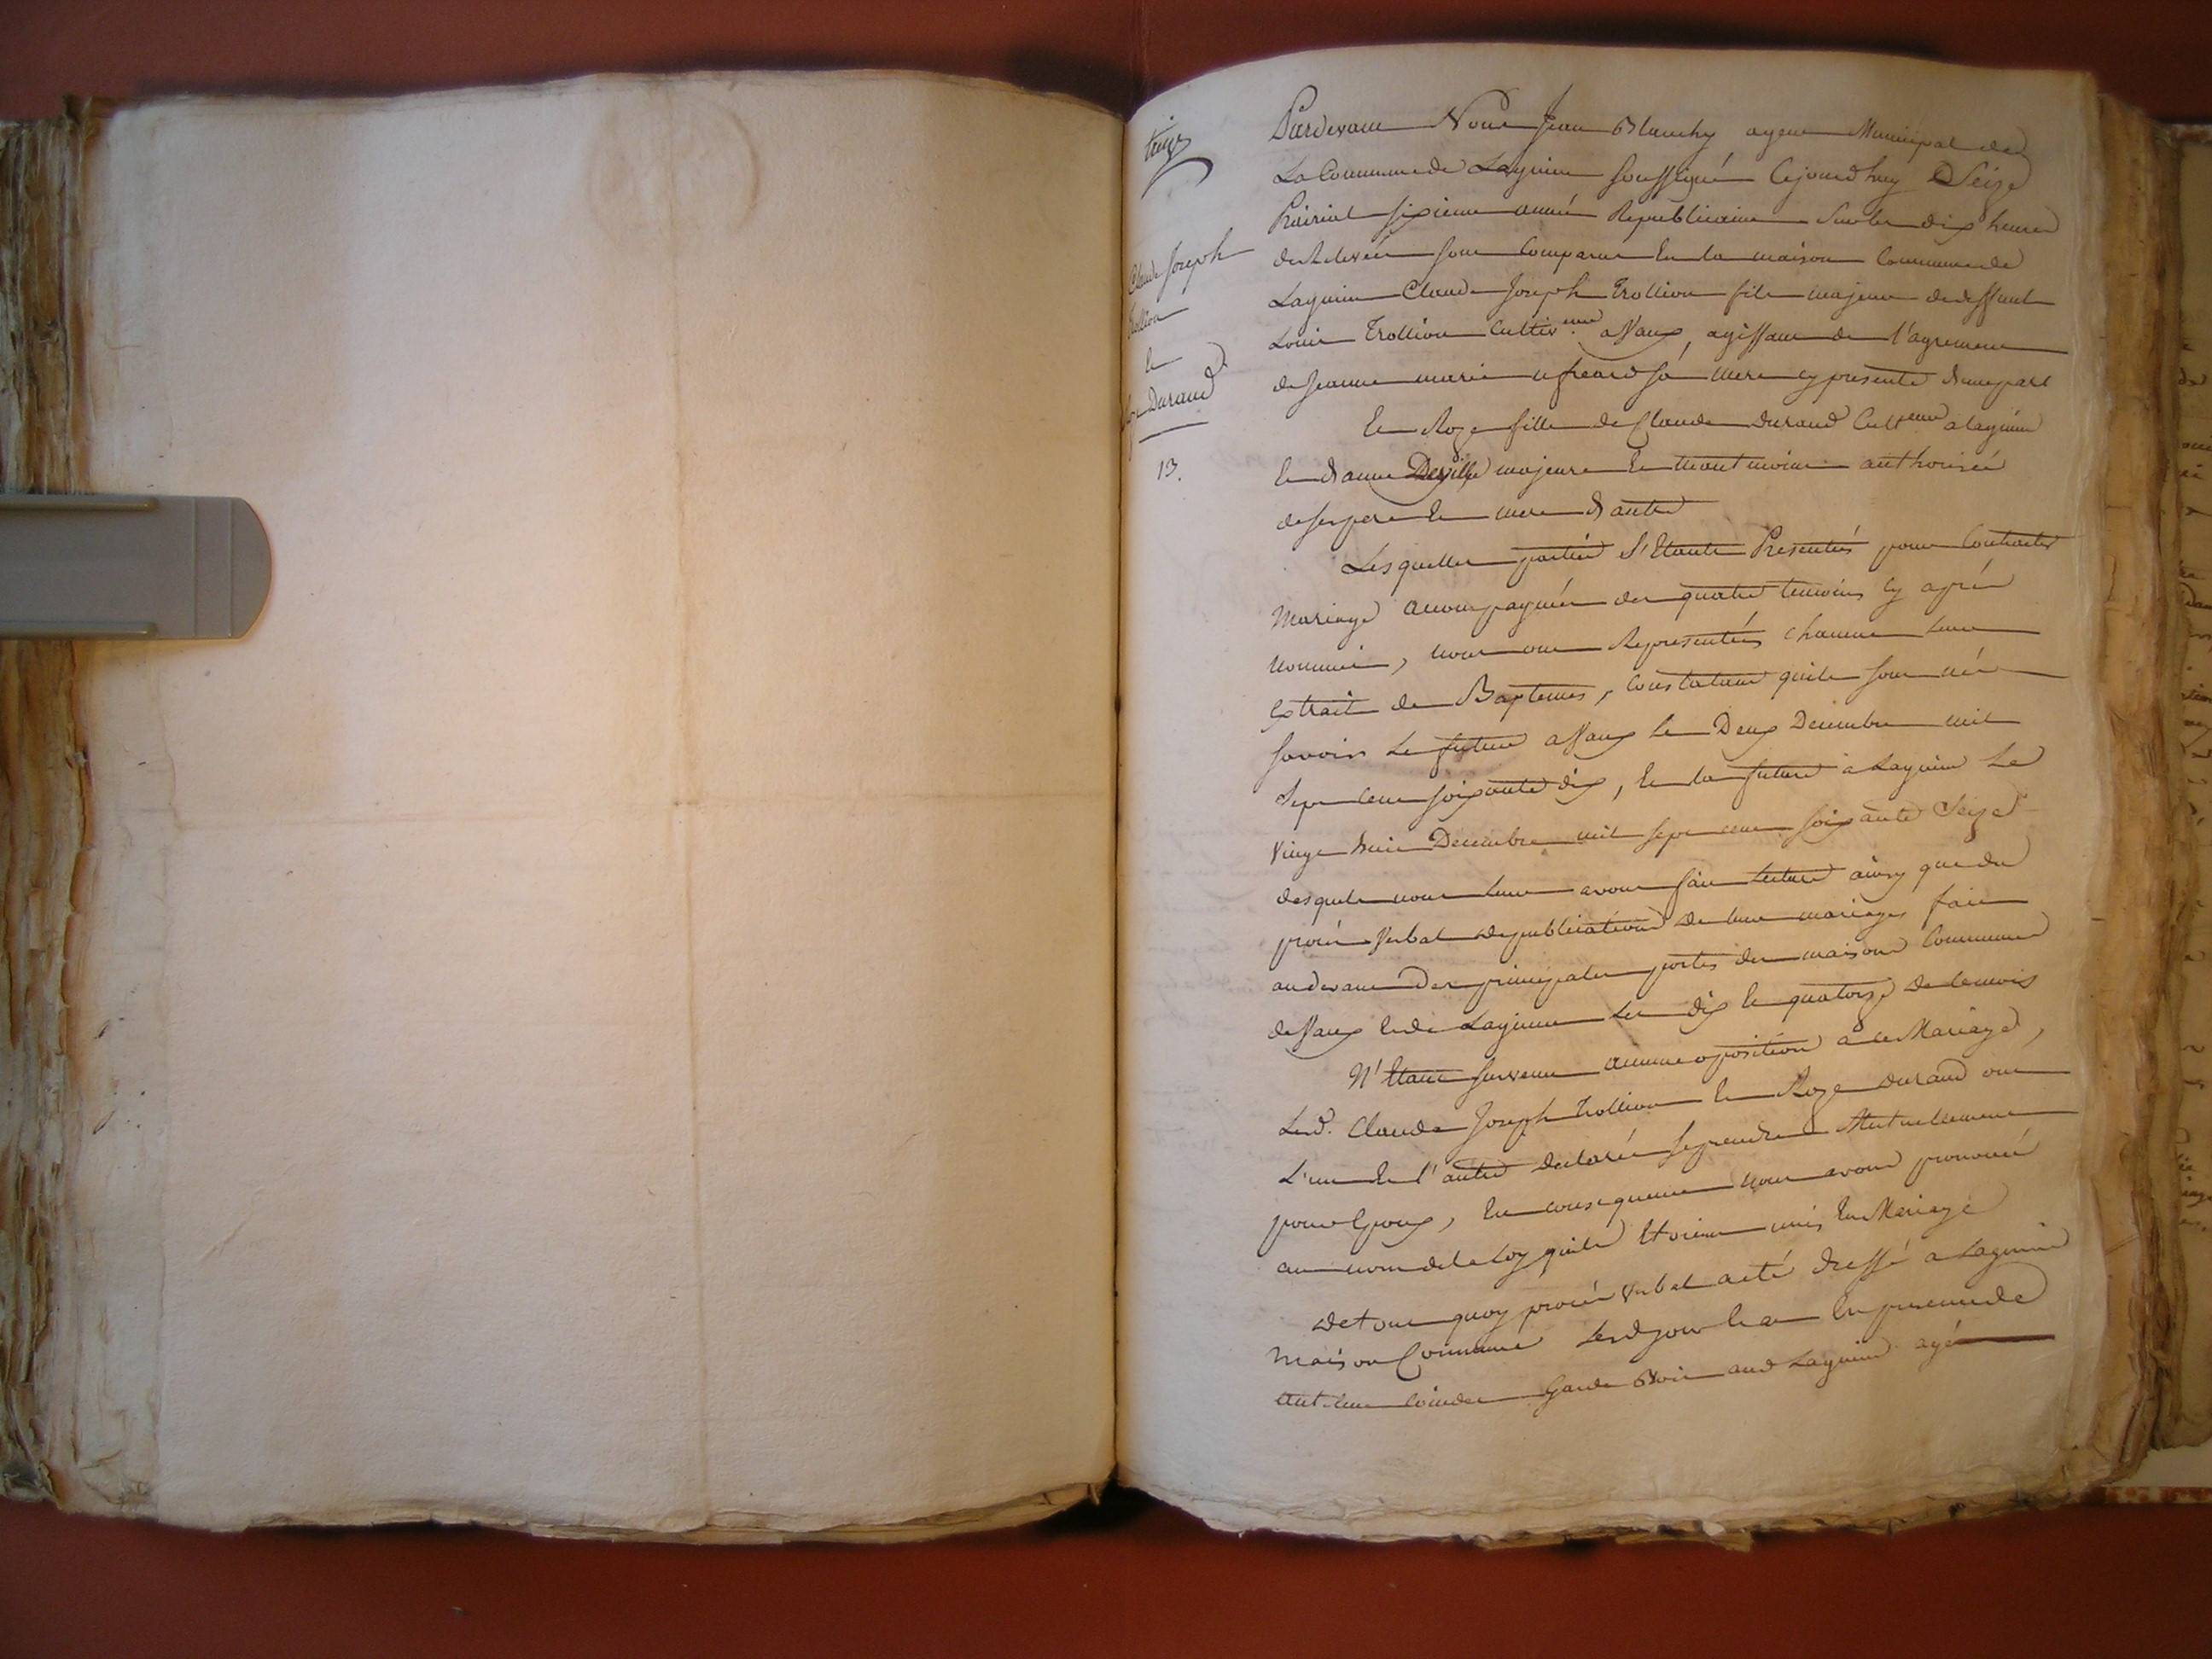 treize
Claude Joseph
Trollion
et
Roze Durand
13.
Pardevant Nous Jean Blanchy agent Municipal de
La Commune de Lagnieu soussigné Cejourdhuy Seize
Prairial sixieme année Republicaine sur les dix heures
de Relevée sont Comparus En la maison Commune de
Lagnieu Claude Joseph Trollion fils majeur de deffunt
Louis Trollion Cultiv.eur a Vaux, agissant de l'agrement
de Jeanne marie sa mere cy presente d'une part
Et Roze fille de Claude Durand Cult.eur a lagnieu
Et d'anne Deville majeure Et neantmoins authorisée
de ses pere Et mere d'autre
Lesquelles parties S'Etants Presentées pour Contracter
Mariage accompagnées des quatre temoins cy après
nommés, nous ont Representées chacune leur
Extrait de Baptemes, Constatant quils sont nés
savoir Le futur a Vaux le Deux Decembre mil
Sept Cent soixante dix, Et la future a Lagnieu Le
Vingt huit Decembre mil sept cent soixante Seize
desquels nous leur avons fait Lecture ainsy que du
procès Verbal de publication de leur mariages fait
audevant Des principales portes des maisons Communes
de Vaux Et de Lagnieu Les dix Et quatorze de ce mois
N'Etant survenu aucune oposition a ce Mariage,
Lesd. Claude Joseph Trollion Et Roze Durand ont
L'un Et l'autre declarés se prendre Mutuellement
pour Epoux, En consequence nous avons prononcé
au nom de la Loy quils Etoient unis En Mariage
de tout quoy procès Verbal acté dressé a Lagnieu
Maison Commune Lesd jour Et an En presence de
Garde Bois aud Lagnieu agé